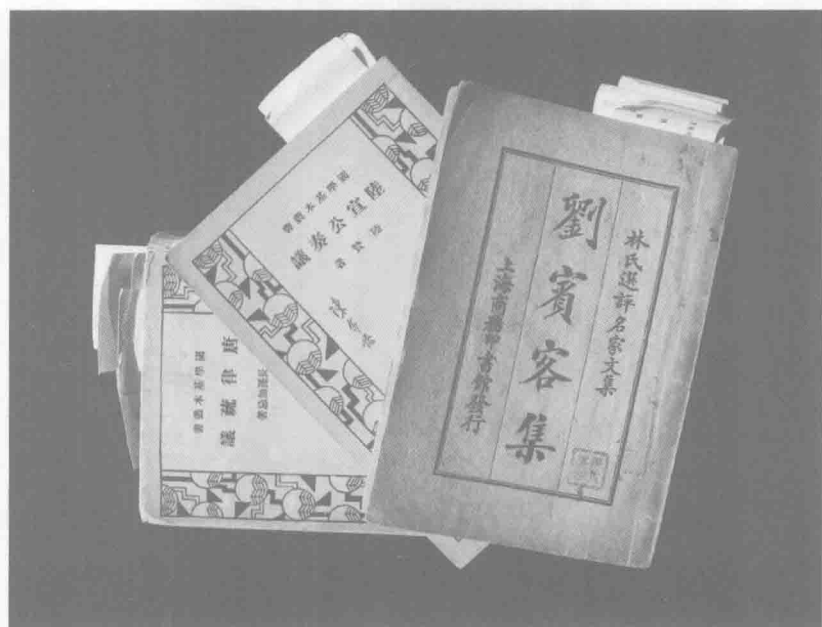 林氏選評名家文集
劉賓客集
上海商務印書館發行
國學基本叢書
陸宣公奏議
陸贄著
國學基本叢書
唐律疏議
長孫無忌著